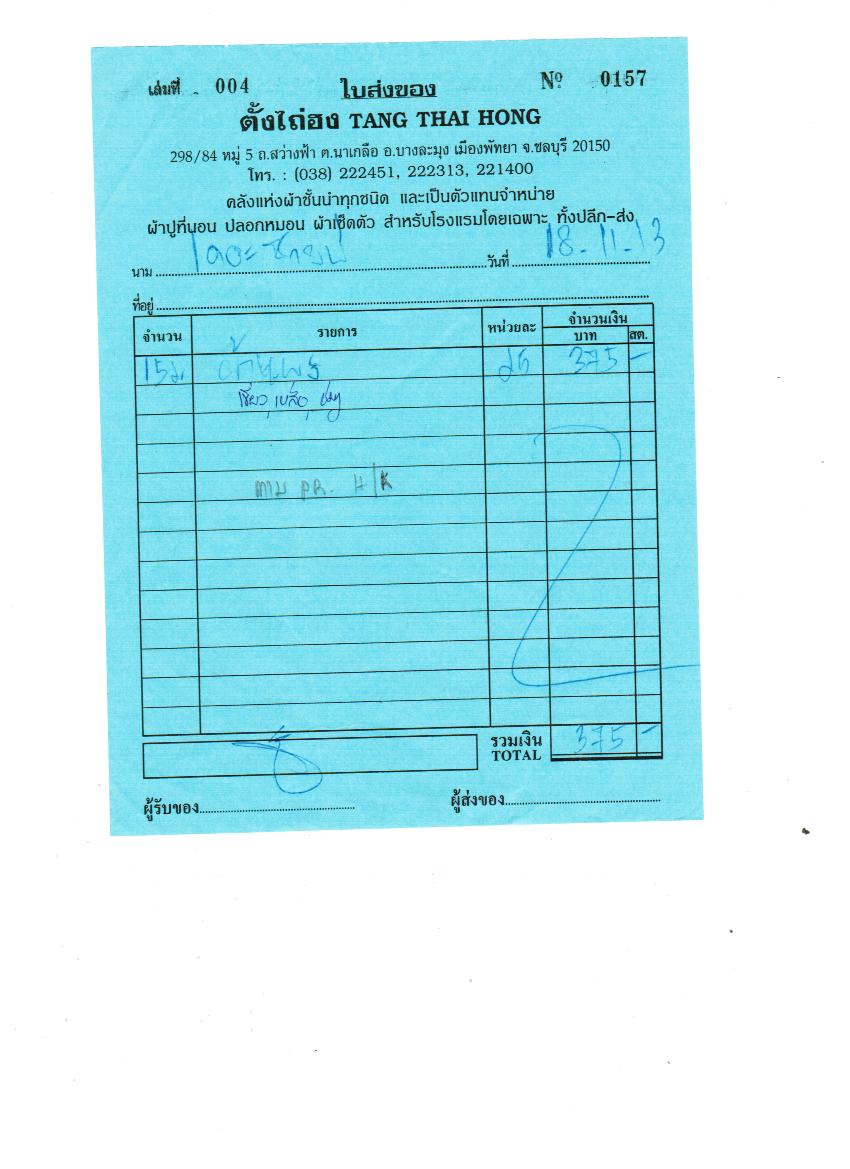 เล่มที่ 004 ใบส่งของ Nº 0157
ตั้งไถ่ฮง TANG THAI HONG
298/84 หมู่ 5 ถ.สว่างฟ้า ต.นาเกลือ อ.บางละมุง เมืองพัทยา จ.ชลบุรี 20150
โทร. : (038) 222451, 222313, 221400
คลังแห่งผ้าชั้นนำทุกชนิด และเป็นตัวแทนจำหน่าย
ผ้าปูที่นอน ปลอกหมอน ผ้าเช็ดตัว สำหรับโรงแรมโดยเฉพาะ ทั้งปลีก-ส่ง
นาม วันที่ 18-11-13
ที่อยู่
จำนวน รายการ หน่วยละ จำนวนเงิน
บาท สต.
15ม. 25 375 -
ตาม PR. H/K
รวมเงิน 375 -
TOTAL
ผู้รับของ ผู้ส่งของ